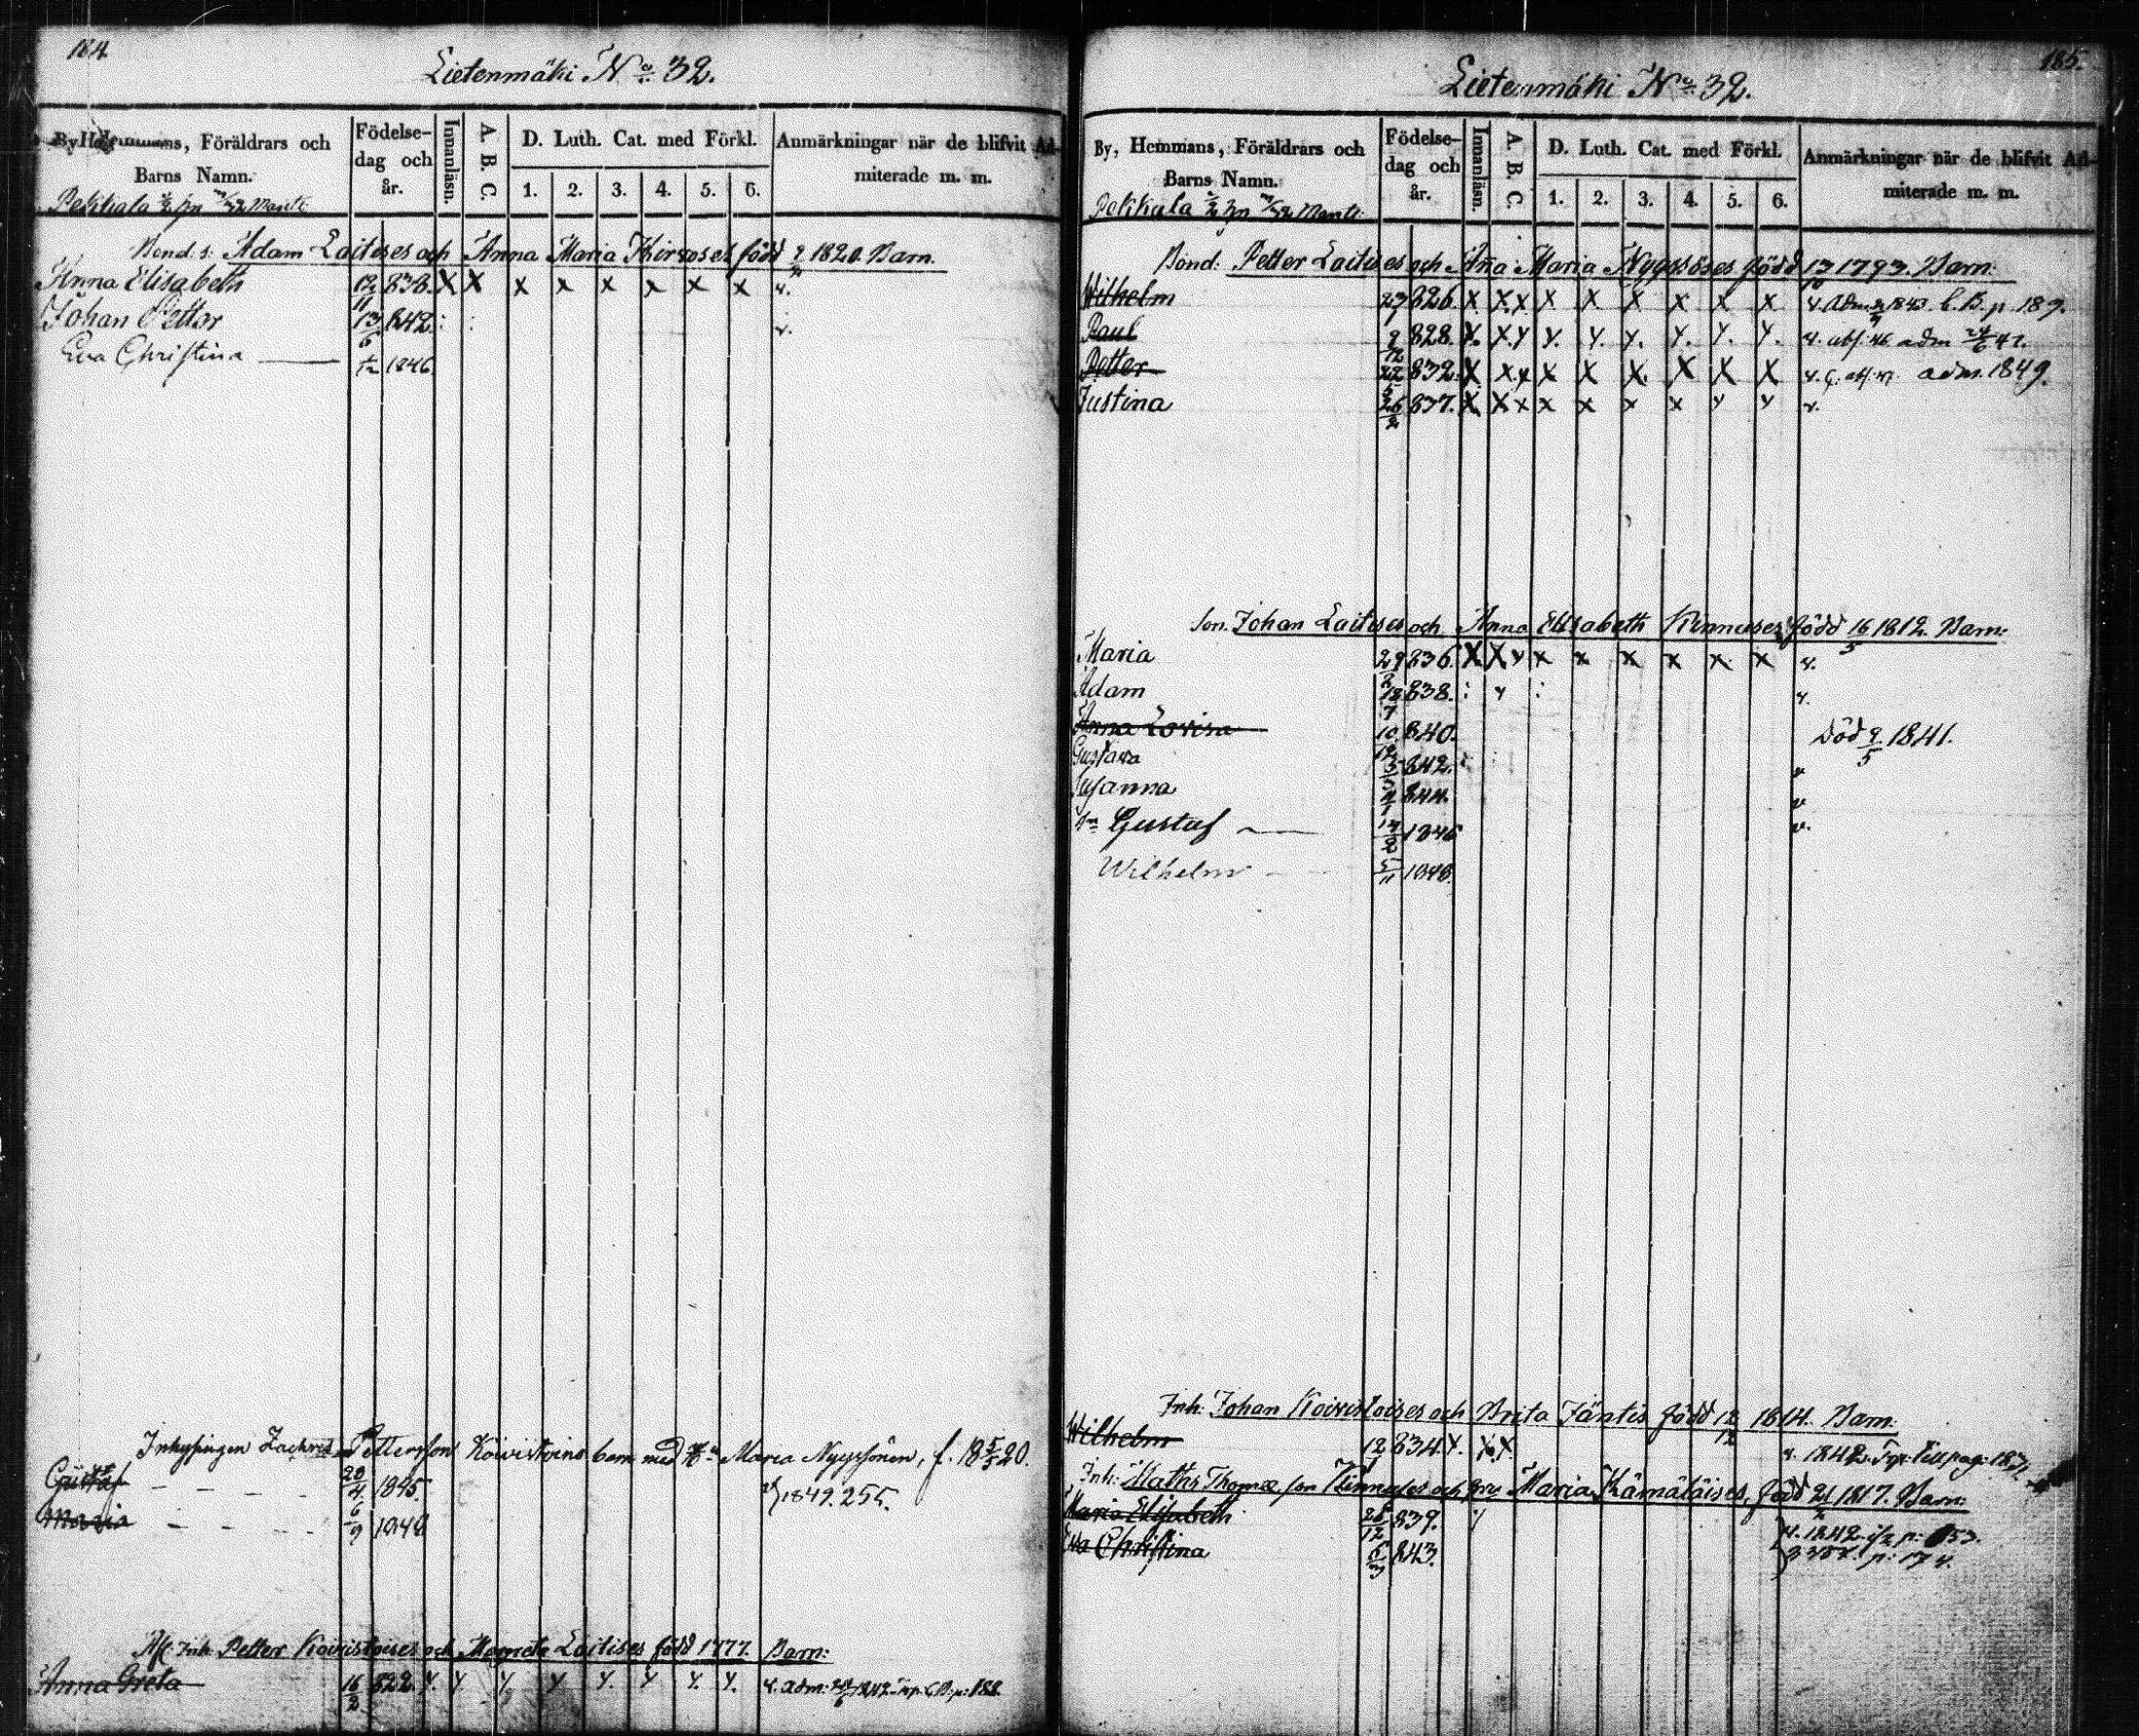 184.
Lietenmäki No 32.
By, Hemmans, Föräldrars och Barns Namn.
Födelse-dag och år.
Innanläsn.
A. B. C.
D. Luth. Cat. med Förkl.
1. 2. 3. 4. 5. 6.
Anmärkningar när de blifvit Admiterade m. m.
Pekkala
Bond: s: Adam Laitises och Anna Maria Kirroses född 1820. Barn.
Anna Elisabeth 12/11 838. X X X X X X X X v.
Johan Petter 13/6 842. v.
Eva Christina 1846.
Inhysingen Zachris Pettersson Koivistoine barn med Maria Nyyssönen, f. 18 5/5 20.
Gustaf 20/4 1845. 1849. 255.
Maria 6/9 1848
Inh: Petter Koivistoises och Margreta Laitises född 1777. Barn:
Anna Greta 16/2 822. v. adm: 1842.
185.
Lietenmäki No 32.
By, Hemmans, Föräldrars och Barns Namn.
Födelse-dag och år.
Innanläsn.
A. B. C.
D. Luth. Cat. med Förkl.
1. 2. 3. 4. 5. 6.
Anmärkningar när de blifvit Admiterade m. m.
Pekkala
Bond: Petter Laitises och Anna Maria Nyyssöses född 13/10 1793. Barn:
Wilhelm 826. X. X. X X X. X X X X v. Adm. 1843. C. B. p. 189.
Paul 9/12 828. X. X. Y Y. Y. Y. Y. Y. Y. v. adm 24/6 47.
Petter 22/5 832. X X. X X X X. X X X v. adm. 1849.
Justina 26/2 837. X. X X X X X X Y Y v.
Son. Johan Laitises och Anna Elisabeth Kinnuses född 16/5 1812. Barn:
Maria 29/2 836. X. X Y X X X X X X v.
Adam 18/7 838. v.
Anna Lovisa 10/12 840. Död 9/5 1841.
Gustava 842. v
Susanna 844. v
Gustaf 14/2 1846 v.
Wilhelm 5/11 1848.
Inh: Johan Koivistoises och Brita Jäntis född 12/12 1814. Barn:
Wilhelm 834. v. 1842.
Inh: Maths Thomæ son Kinnuses och Maria Hämäläises, född 21 1817. Barn:
Maria Elisabeth 839. v. 1842.
Eva Christina 843. p: 174.